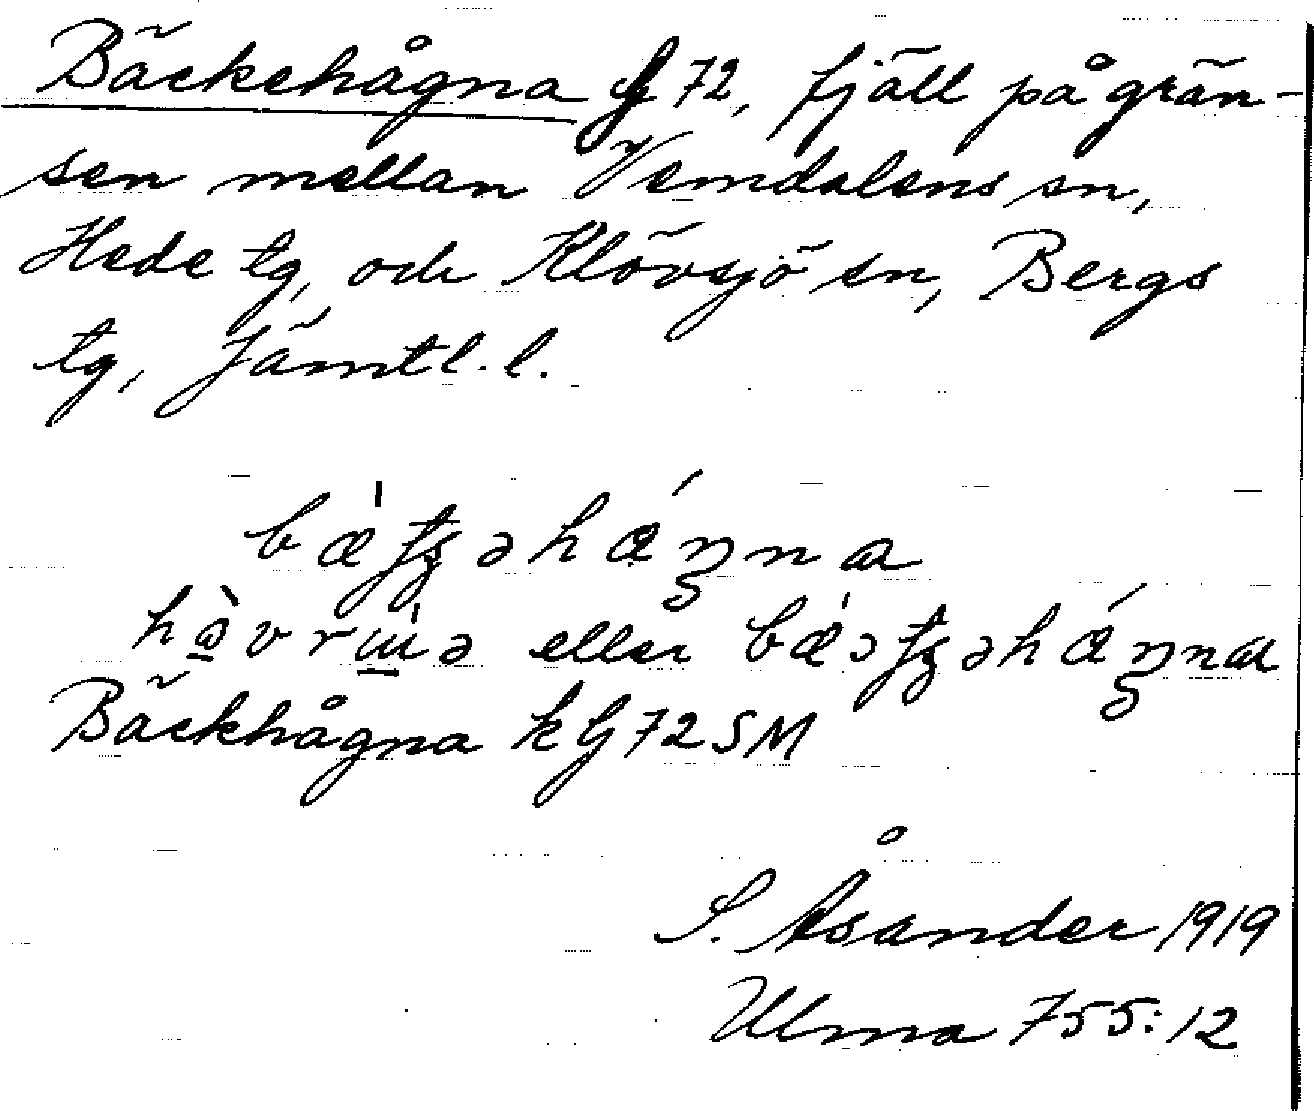 Bäckehågna G 72, fjäll på grän-
sen mellan Vemdalens sn,
Hede tg, och Klövsjö sn, Bergs
tg, Jämtl. l.
eller
Bäckhågna k G 72 SM
S. Åsander 1919
Ulma 755:12